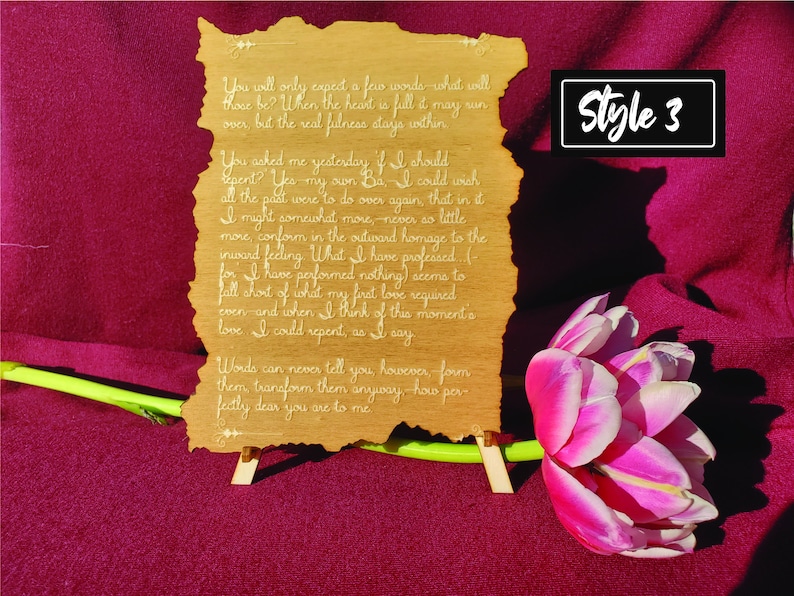 You will only expect a few words—what will
those be? When the heart is full it may run
over, but the real fulness stays within.
You asked me yesterday 'if I should
repent?' Yes—my own Ba,—I could wish
all the past were to do over again, that in it
I might somewhat more,—never so little
more, conform in the outward homage to the
inward feeling. What I have professed...(-
for I have performed nothing) seems to
fall short of what my first love required
even—and when I think of this moment's
love...I could repent, as I say.
Words can never tell you, however,—form
them, transform them anyway,—how per-
fectly dear you are to me.
Style 3